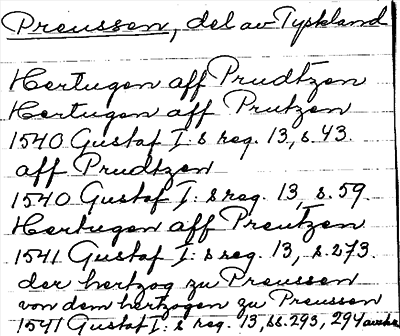 Preussen, del av Tyskland
Hertugen aff Prudtzen
Hertugen aff Prutzen
1540 Gustaf I: s reg. 13, s. 43.
aff Prudtzen
1540 Gustaf I: s reg. 13, s. 59.
Hertugen aff Preutzen
1541 Gustaf I: s reg. 13, s. 273.
der hertzog zu Preussen
von dem hertzogen zu Preussen
1541 Gustaf I: s reg. 13, ss. 293, 294